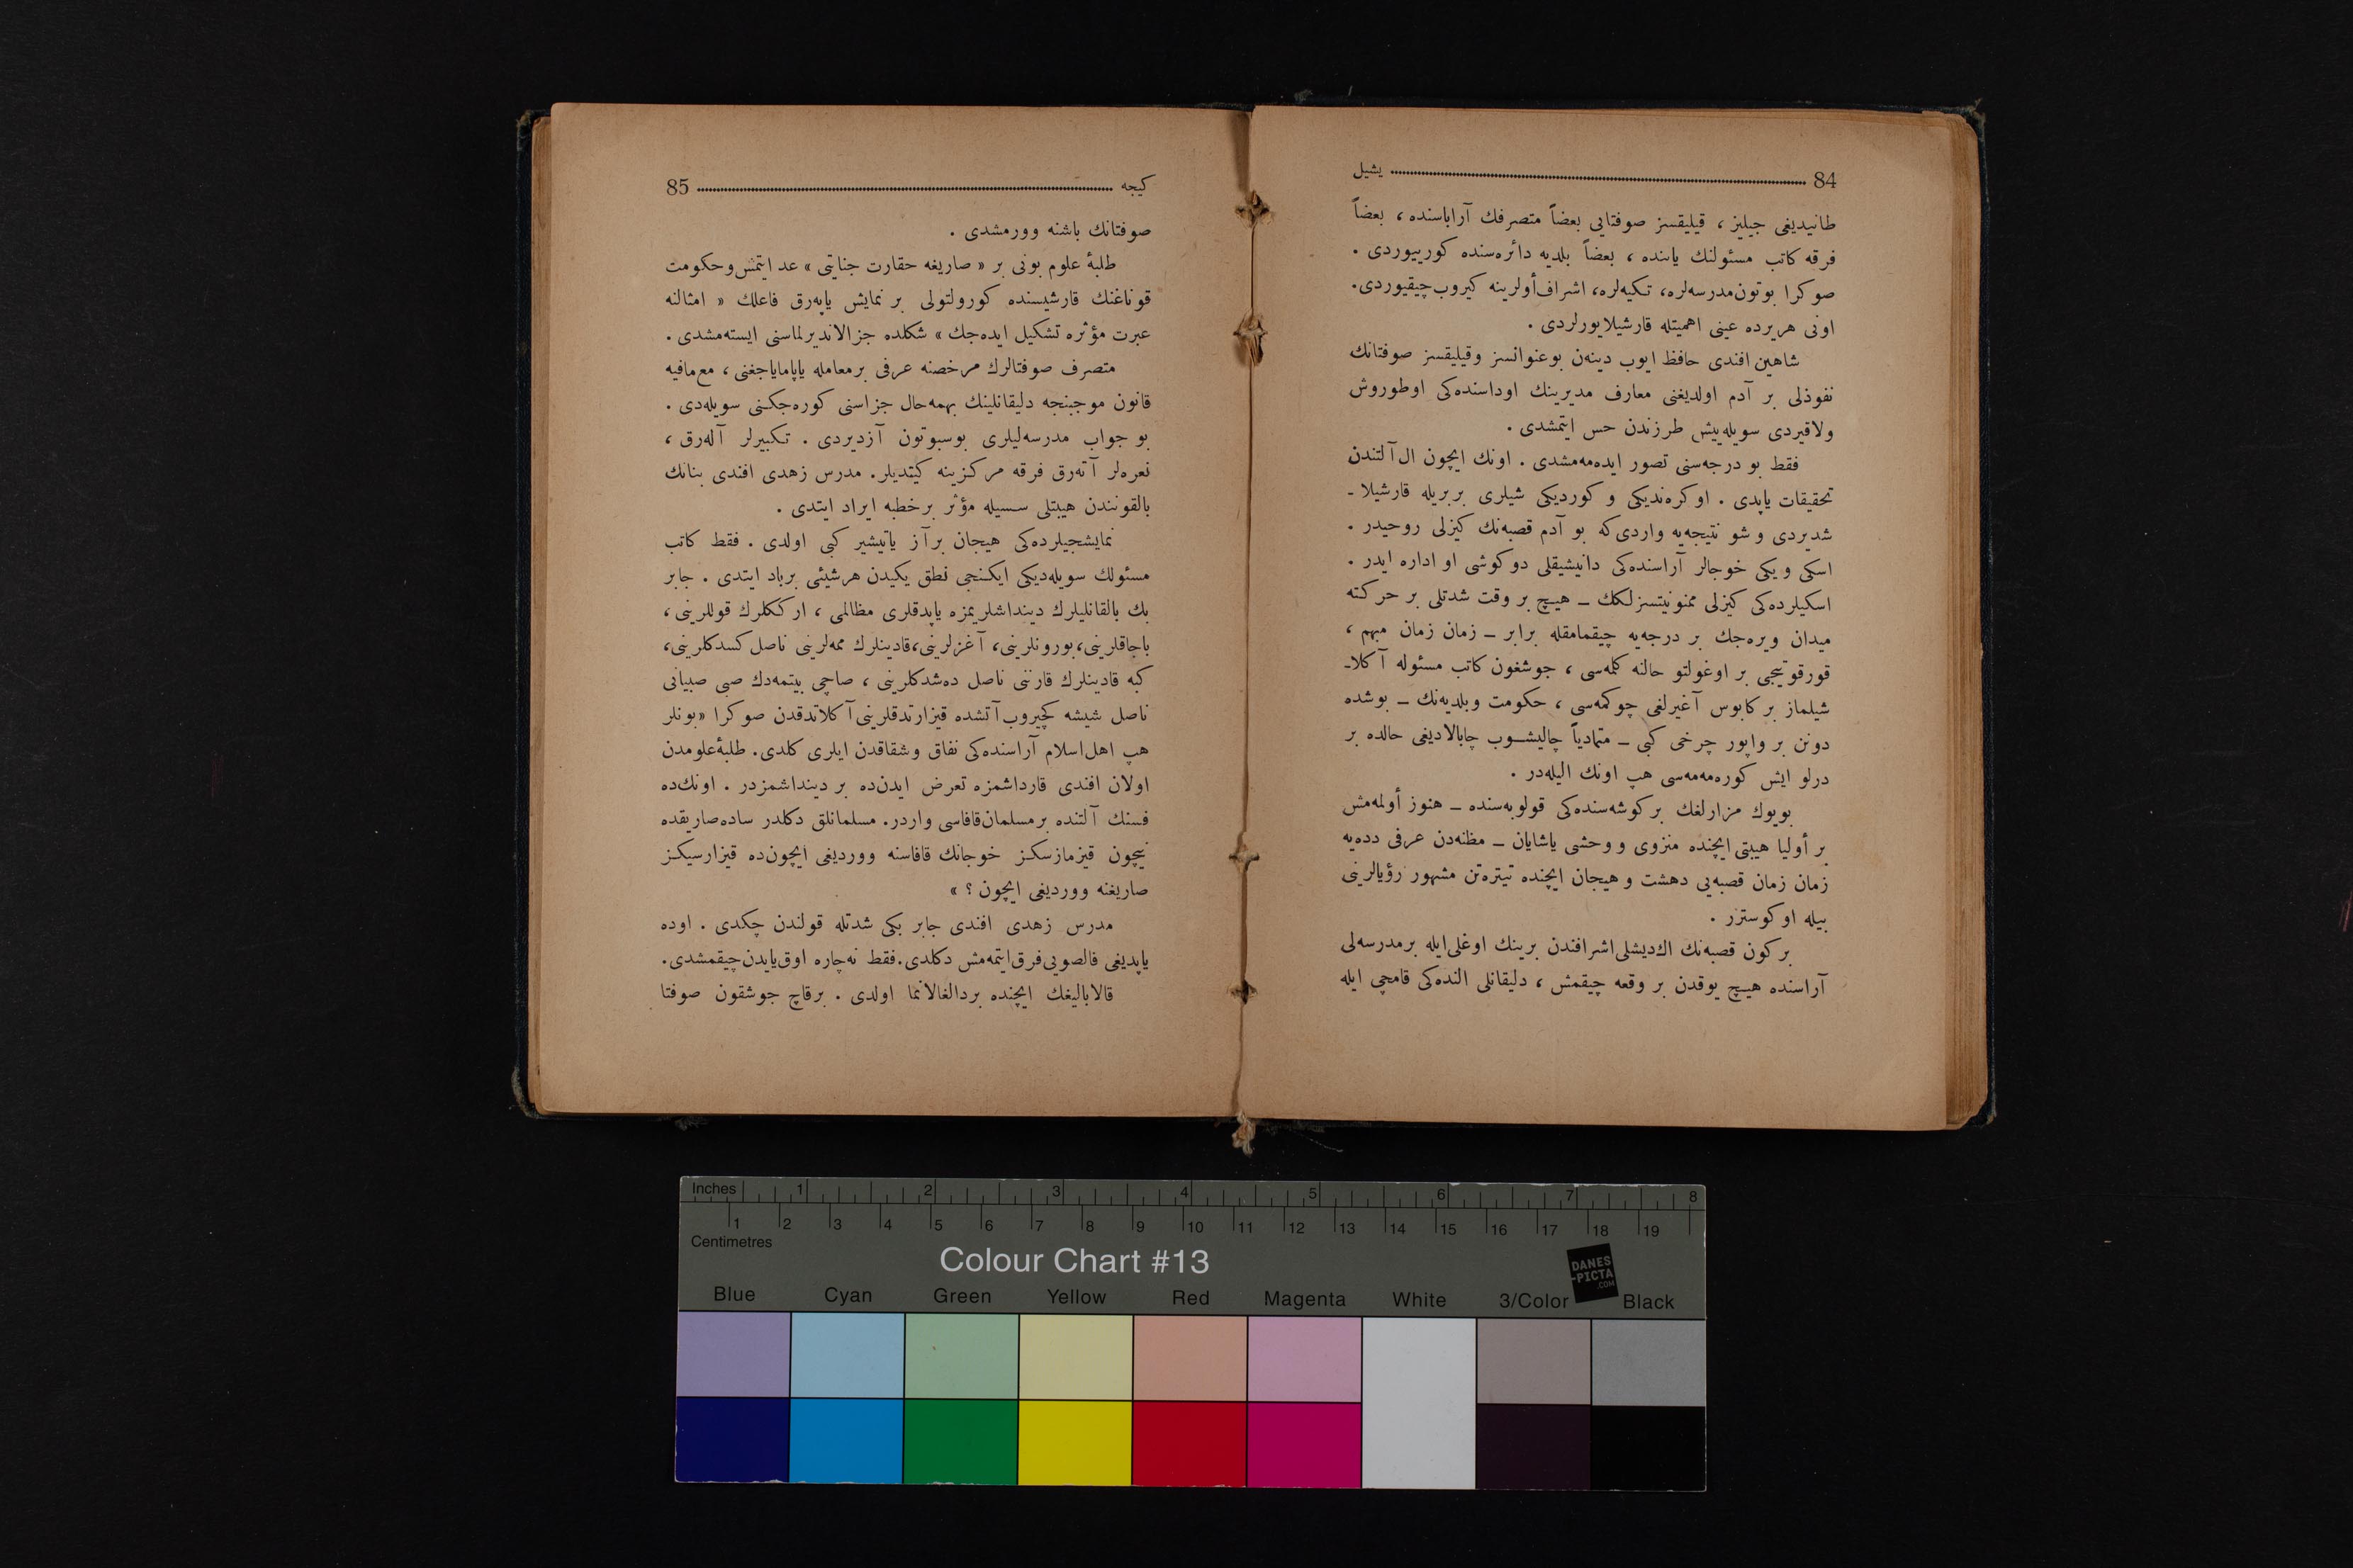 84 یشیل
طانیدیغی جیلیز ، قیلیقسز صوفتایی بعضاً متصرفك آراباسنده ، بعضاً
فرقه كاتب مسئولنك یاننده ، بعضاً بلدیه دائره‌سنده كورییوردی .
صوكرا بوتون مدرسه‌لره، تكیه‌لره، اشراف أولرینه كیروب چیقیوردی.
اونی هریرده عینی اهمیتله قارشیلایورلردی .
شاهین افندی حافظ ایوب دینه‌ن بو عنوانسز وقیلیقسز صوفتانك
نفوذلی بر آدم اولدیغنی معارف مدیرینك اوداسنده‌كی اوطوروش
ولاقیردی سویله‌ییش طرزندن حس ایتمشدی .
فقط بو درجه‌سنی تصور ایده‌مه‌مشدی . اونك ایچون ال آلتندن
تحقیقات یاپدی . اوكره‌ندیكی و كوردیكی شیلری بربریله قارشیلا ـ
شدیردی و شو نتیجه‌یه واردی كه بو آدم قصبه‌نك كیزلی روحیدر .
اسكی و یكی خوجالر آراسنده‌كی دانیشیقلی دوكوشی او اداره ایدر .
اسكیلرده‌كی كیزلی ممنونیتسزلكك ـ هیچ بر وقت شدتلی بر حركته
میدان ویره‌جك بر درجه‌یه چیقمامقله برابر ـ زمان زمان مبهم ،
قورقوتیجی بر اوغولتو حالنه كلمه‌سی ، جوشغون كاتب مسئوله آكلاـ
شیلماز بر كابوس آغیرلغی چوكمه‌سی ، حكومت وبلدیه‌نك ـ بوشده
دونن بر واپور چرخی كبی ـ متمادیاً چالیشوب چابالادیغی حالده بر
درلو ایش كوره‌مه‌مه‌سی هپ اونك الیله‌در .
بویوك مزارلغك بر كوشه‌سنده‌كی قولوبه‌سنده ـ هنوز أولمه‌مش
بر أولیا هیبتی ایچنده منزوی و وحشی یاشایان ـ مظنه‌دن عرفی دده‌یه
زمان زمان قصبه‌یی دهشت و هیجان ایچنده تیتره‌تن مشهور رؤیالرینی
بیله او كوسترر .
بر كون قصبه‌نك اك دیشلی اشرافندن برینك اوغلی ایله بر مدرسه‌لی
آراسنده هیچ یوقدن بر وقعه چیقمش ، دلیقانلی النده‌كی قامچی ایله
كیجه 85
صوفتانك باشنه وورمشدی .
طلبهٔ علوم بونی بر « صاریغه حقارت جنایتی » عد ایتمش و حكومت
قوناغنك قارشیسنده كورولتولی بر نمایش یاپه‌رق فاعلك « امثالنه
عبرت مؤثره تشكیل ایده‌جك » شكلده جزالاندیرلماسنی ایسته‌مشدی .
متصرف صوفتالرك مرخصنه عرفی بر معامله یاپامایاجغنی ، مع مافیه
قانون موجبنجه دلیقانلینك بهمه‌حال جزاسنی كوره‌جكنی سویله‌دی .
بو جواب مدرسه‌لیلری بوسبوتون آزدیردی . تكبیرلر آله‌رق ،
نعره‌لر آته‌رق فرقه مركزینه كیتدیلر. مدرس زهدی افندی بنانك
بالقونندن هیبتلی سسیله مؤثر بر خطبه ایراد ایتدی .
نمایشجیلرده‌كی هیجان بر آز یاتیشیر كبی اولدی . فقط كاتب
مسئولك سویله‌دیكی ایكنجی نطق یكیدن هرشیئی برباد ایتدی . جابر
بك بالقانلیلرك دینداشلریمزه یاپدقلری مظالمی ، ارككلرك قوللرینی ،
باجاقلرینی، بورونلرینی، آغزلرینی، قادینلرك ممه‌لرینی ناصل كسدكلرینی،
كبه قادینلرك قارننی ناصل ده‌شدكلرینی ، صاچی بیتمه‌دك صبی صبیانی
ناصل شیشه كچیروب آتشده قیزارتدقلرینی آكلاتدقدن صوكرا «بونلر
هپ اهل اسلام آراسنده‌كی نفاق و شقاقدن ایلری كلدی. طلبهٔ علومدن
اولان افندی قارداشمزه تعرض ایدن ده بر دینداشمزدر . اونك ده
فسنك آلتنده بر مسلمان قافاسی واردر. مسلمانلق دكلدر ساده صاریقده
نیچون قیزمازسكز خوجانك قافاسنه ووردیغی ایچون ده قیزارسیكز
صاریغنه ووردیغی ایچون ؟ »
مدرس زهدی افندی جابر بكی شدتله قولندن چكدی . اوده
یاپدیغی فالصویی فرق ایتمه‌مش دكلدی. فقط نه چاره اوق یایدن چیقمشدی.
قالابالیغك ایچنده بر دالغالانما اولدی . برقاچ جوشقون صوفتا
Inches 1 2 3 4 5 6 7 8
1 2 3 4 5 6 7 8 9 10 11 12 13 14 15 16 17 18 19
Centimetres
Colour Chart #13
DANES
-PICTA
.COM
Blue Cyan Green Yellow Red Magenta White 3/Color Black